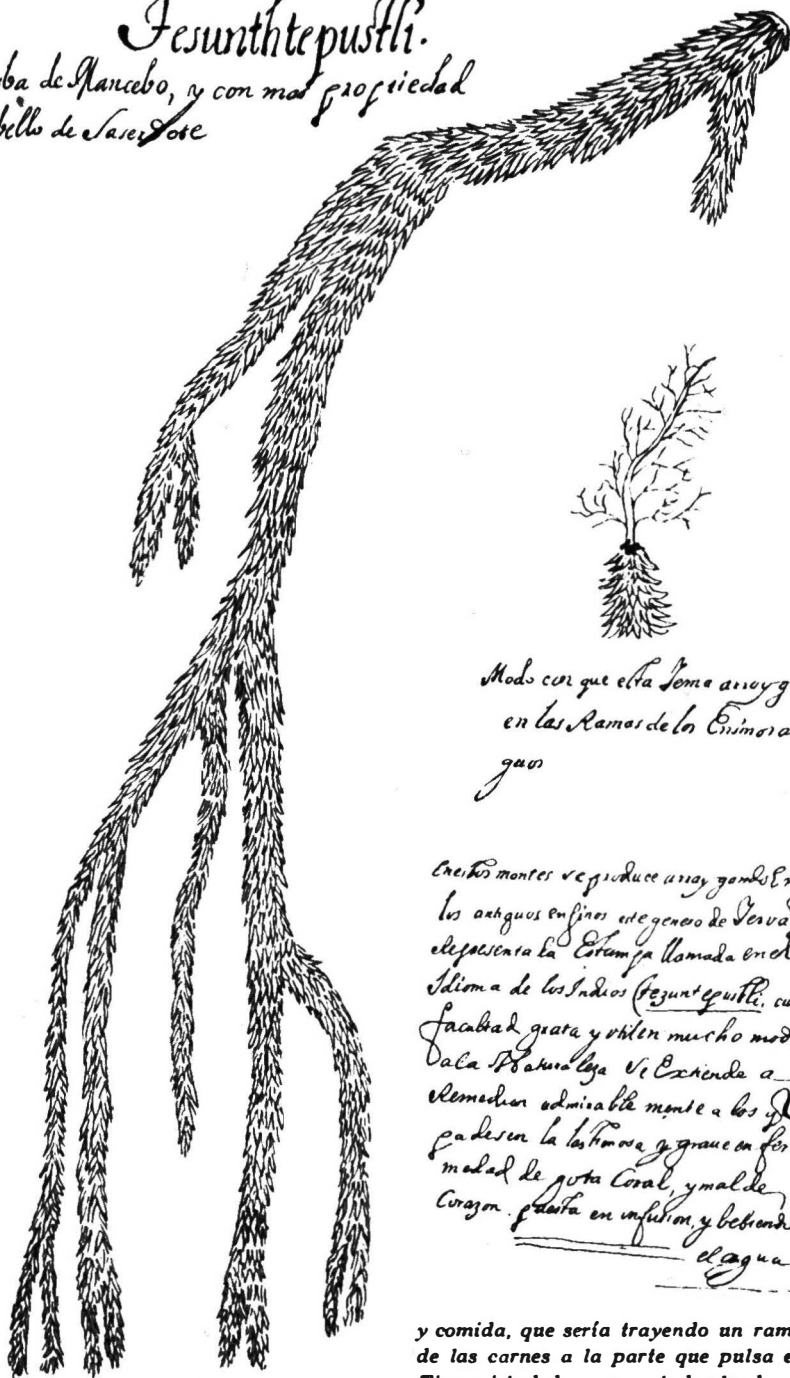 Tesunthtepustli.
ba de Mancebo, y con mas propriedad
bello de Saserdote
Modo con que esta Jema array g
en las Ramas de los
guos
en estos montes se produce array gando En
los antiguos enfinos este genero de Jerva
representa la Estampa llamada en el
Idioma de los Indios tezuntepustli, cu
facultad grata y util en mucho mod
ala Naturaleza se Extiende a
Remediar admirable mente a los q
padesen la lastimosa y grave en fer
medad de gota Coral, y mal de
Corazon. puesta en infusion, y bebiend
el agua
y comida, que sería trayendo un ram
de las carnes a la parte que pulsa e